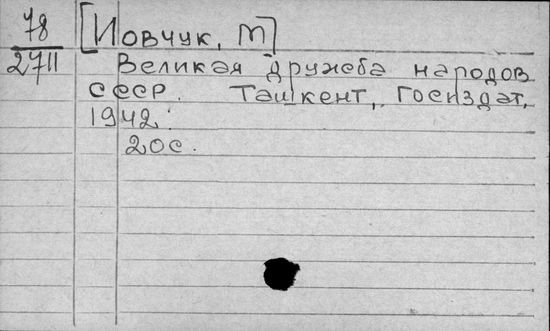 78
2711
[Иовчук, М]
Великая дружба народов
СССР. Ташкент, Госиздат,
1942.
20с.